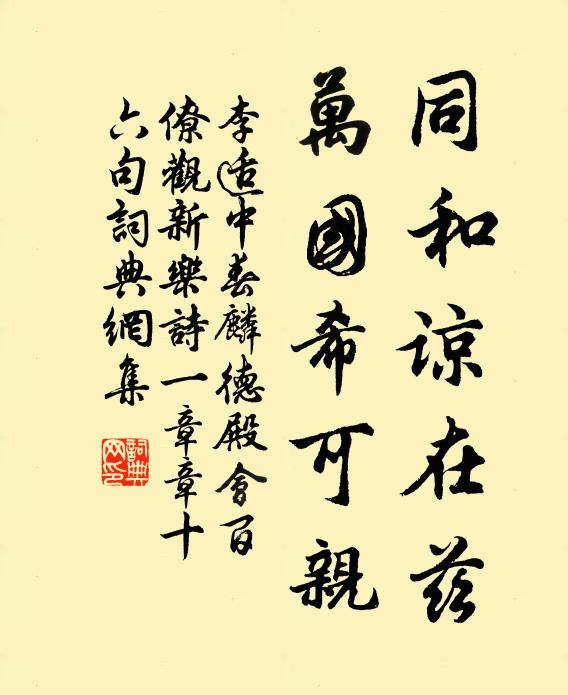 同和谅在茲
萬國希可親
李适中春麟德殿會百
僚觀新樂詩一章章十
六句詞典網集
詞典
网印